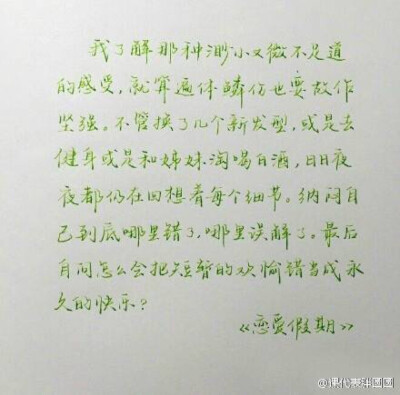 我了解那种渺小又微不足道
的感受，就算遍体鳞伤也要故作
坚强。不管换了几个新发型，或是去
健身或是和姊妹淘喝白酒，日日夜
夜都仍在回想着每个细节。纳闷自
己到底哪里错了，哪里误解了。最后
自问怎么会把短暂的欢愉错当成永
久的快乐？
《恋爱假期》
@课代表汪團團